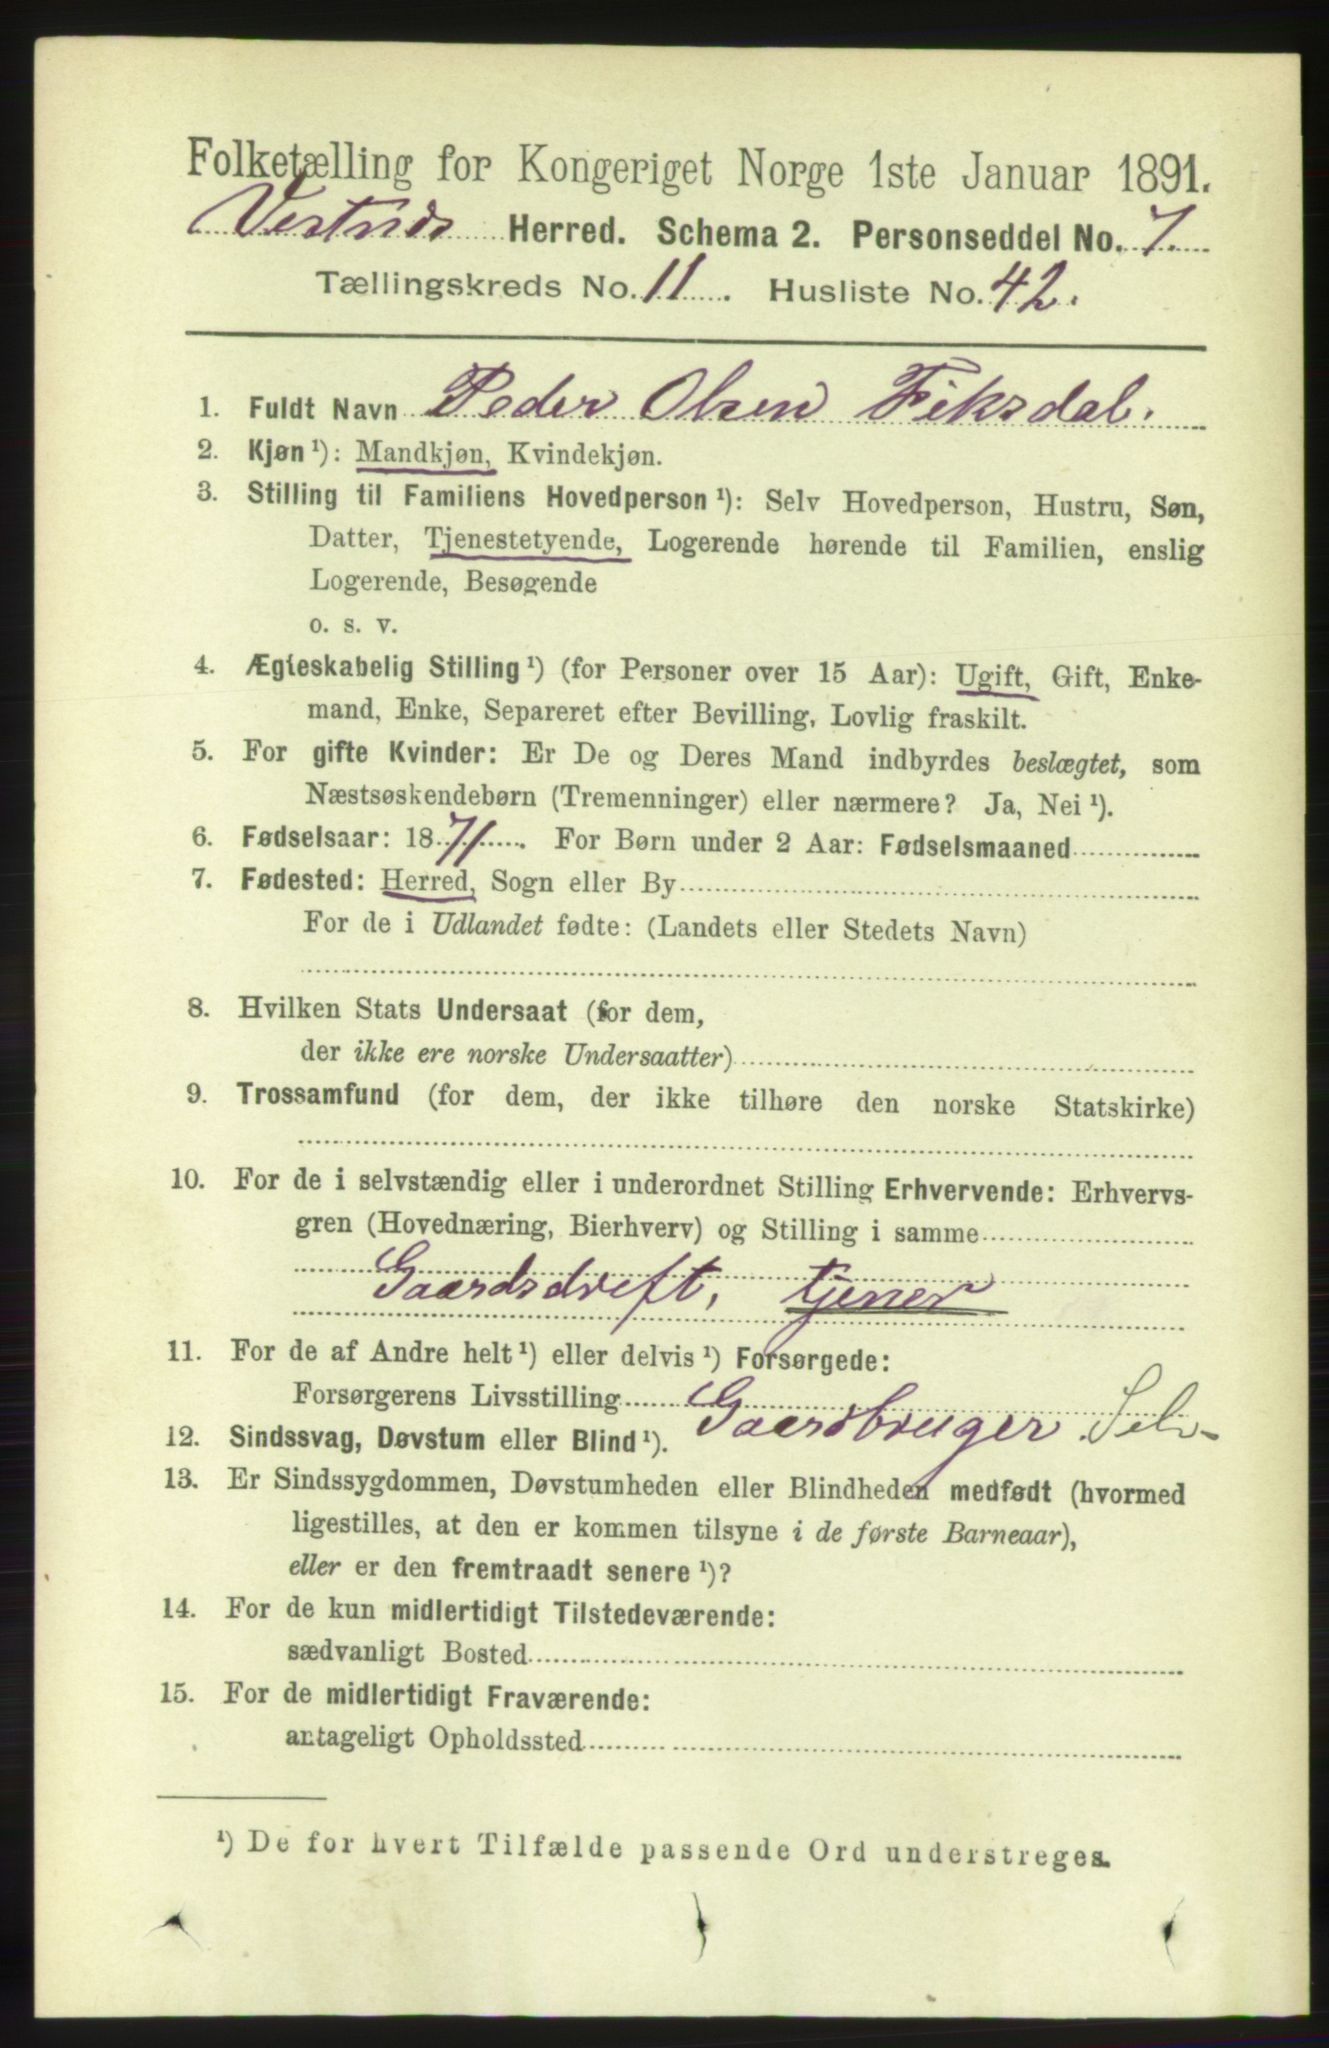 Folketælling for Kongeriget Norge 1ste Januar 1891.
Vestnes Herred. Schema 2. Personseddel No. 7.
Tællingskreds No. 11. Husliste No. 42.
1. Fuldt Navn Peder Olsen Fiksdal.
2. Kjøn ¹): Mandkjøn, Kvindekjøn.
3. Stilling til Familiens Hovedperson ¹): Selv Hovedperson, Hustru, Søn,
Datter, Tjenestetyende, Logerende hørende til Familien, enslig
Logerende, Besøgende
o. s. v.
4. Ægteskabelig Stilling ¹) (for Personer over 15 Aar): Ugift, Gift, Enke-
mand, Enke, Separeret efter Bevilling, Lovlig fraskilt.
5. For gifte Kvinder: Er De og Deres Mand indbyrdes beslægtet, som
Næstsøskendebørn (Tremenninger) eller nærmere? Ja, Nei ¹).
6. Fødselsaar: 1871. For Børn under 2 Aar: Fødselsmaaned
7. Fødested: Herred, Sogn eller By
For de i Udlandet fødte: (Landets eller Stedets Navn)
8. Hvilken Stats Undersaat (for dem,
der ikke ere norske Undersaatter)
9. Trossamfund (for dem, der ikke tilhøre den norske Statskirke)
10. For de i selvstændig eller i underordnet Stilling Erhvervende: Erhvervs-
gren (Hovednæring, Bierhverv) og Stilling i samme
Gaardsdrift, tjener
11. For de af Andre helt ¹) eller delvis ¹) Forsørgede:
Forsørgerens Livsstilling Gaardbruger Selv-
12. Sindssvag, Døvstum eller Blind ¹).
13. Er Sindssygdommen, Døvstumheden eller Blindheden medfødt (hvormed
ligestilles, at den er kommen tilsyne i de første Barneaar),
eller er den fremtraadt senere ¹)?
14. For de kun midlertidigt Tilstedeværende:
sædvanligt Bosted
15. For de midlertidigt Fraværende:
antageligt Opholdssted
¹) De for hvert Tilfælde passende Ord understreges.